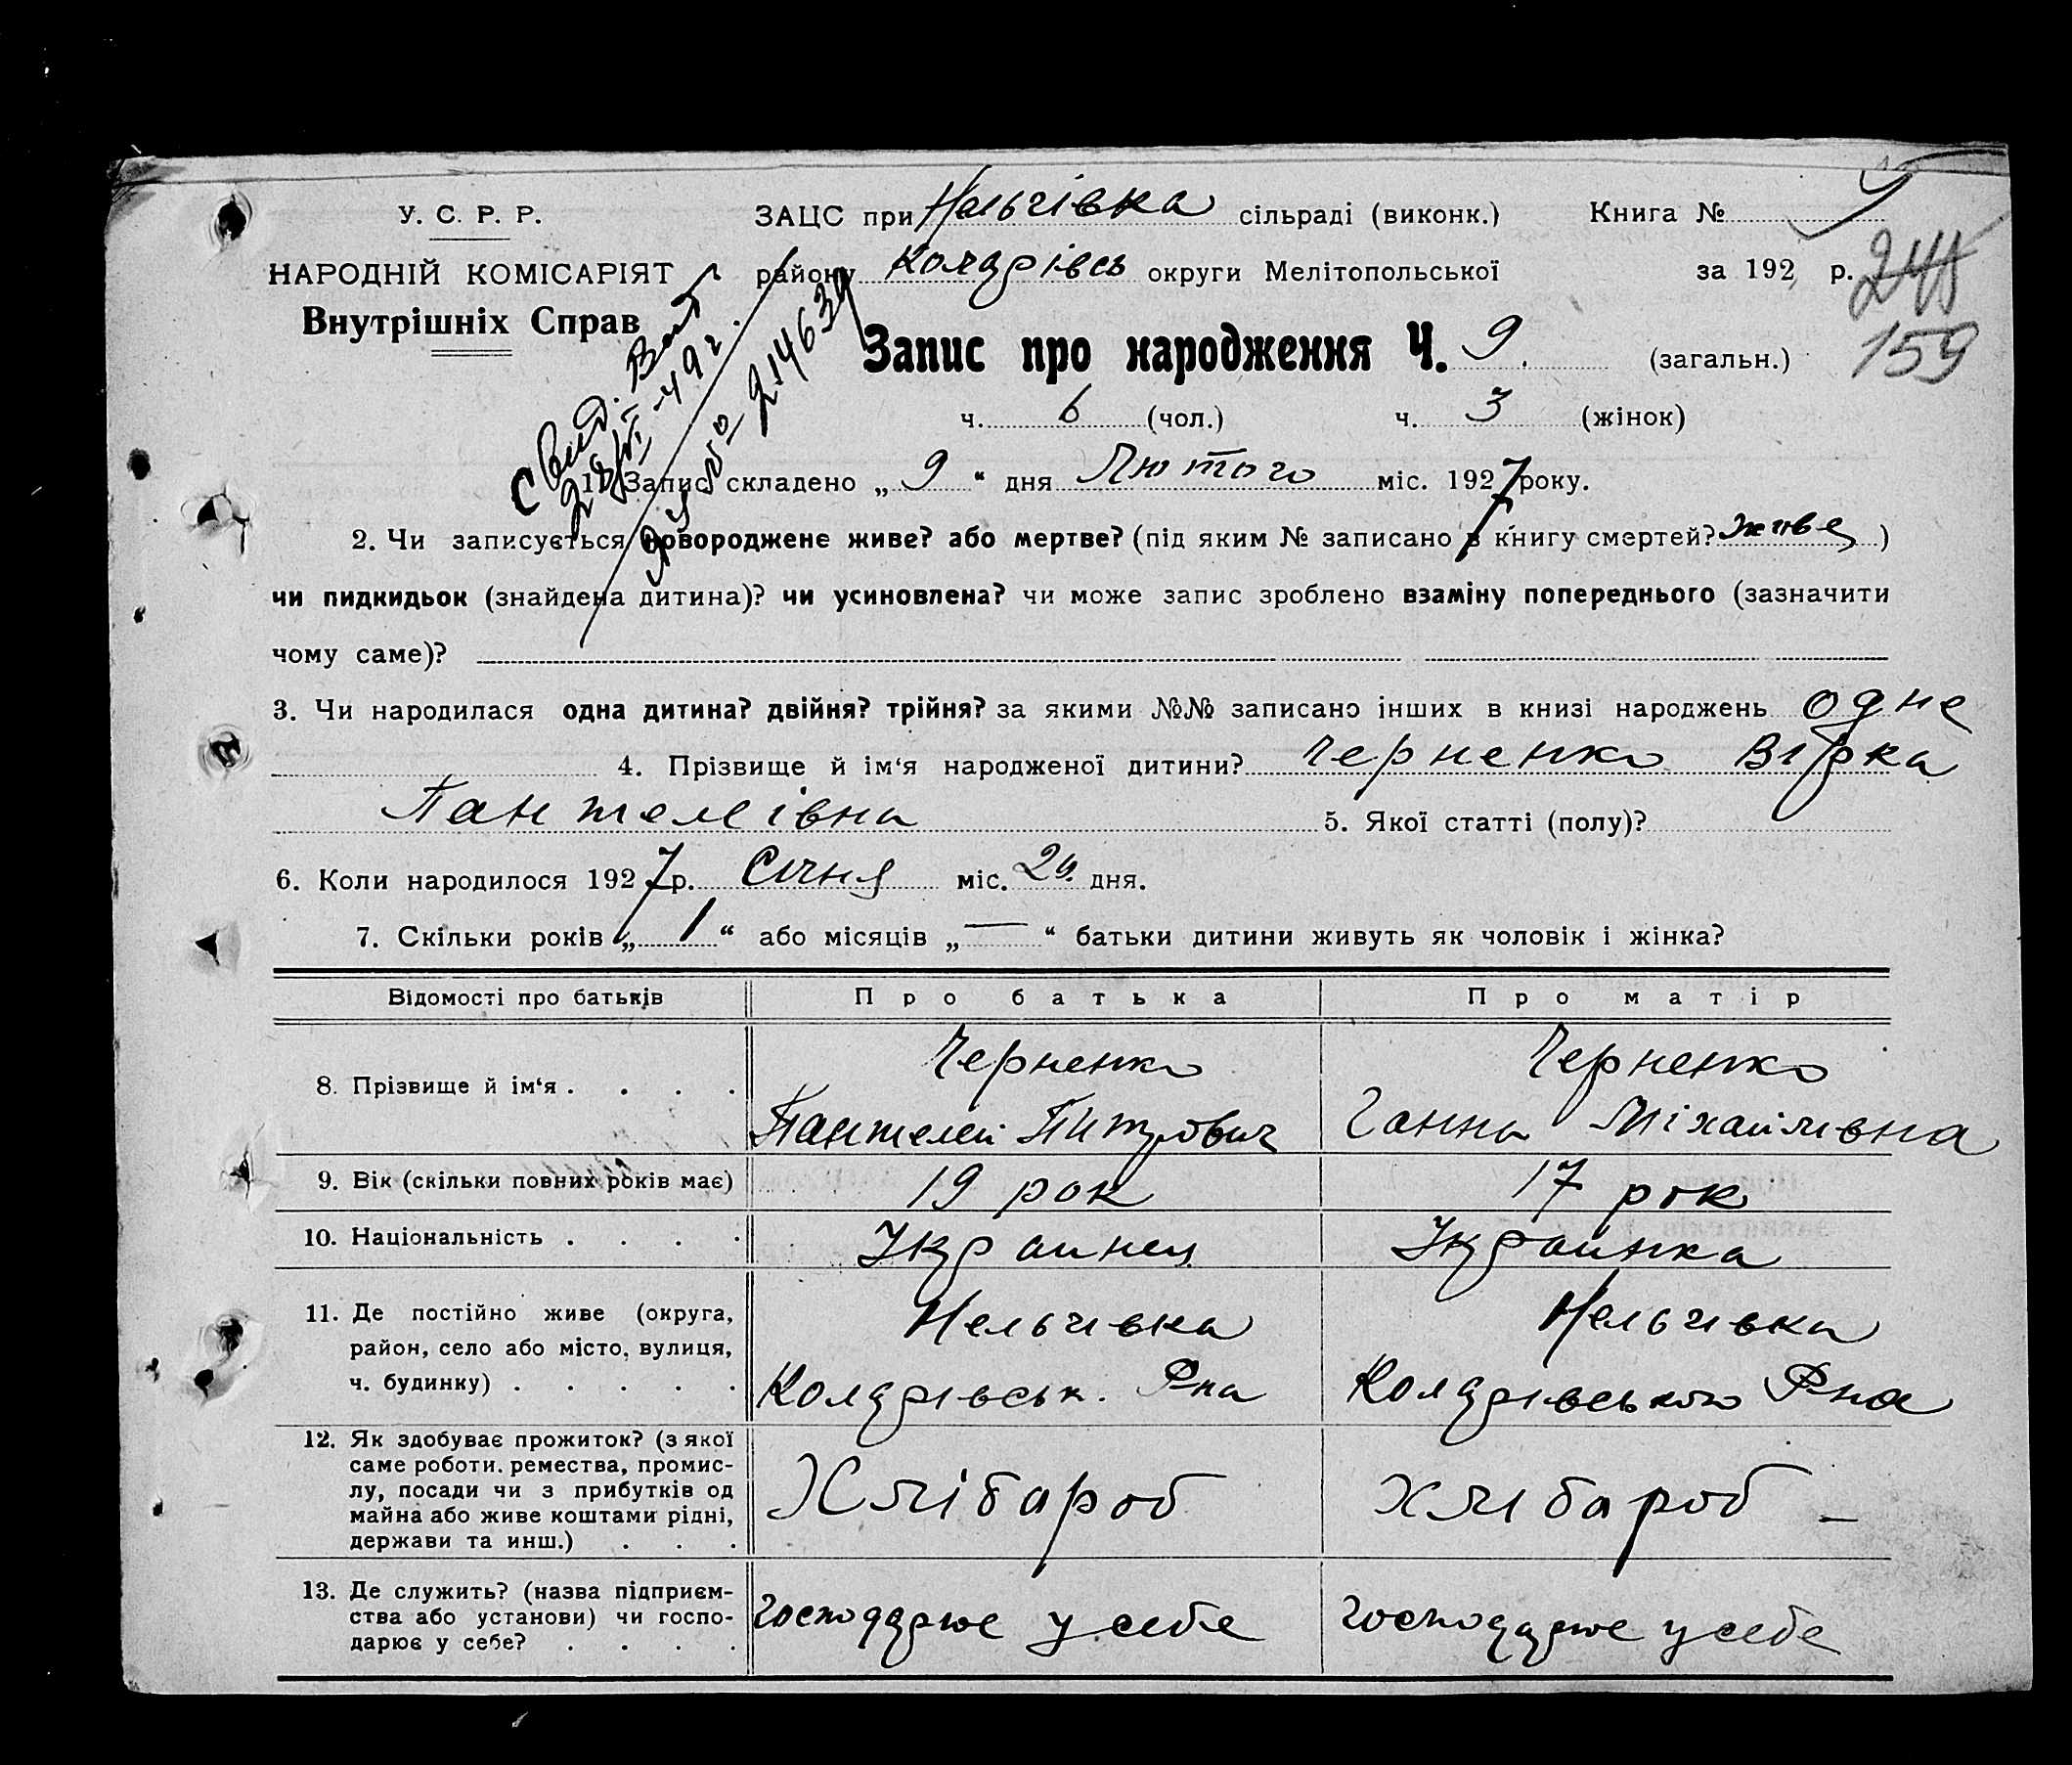 У. С. Р. Р.
НАРОДНІЙ КОМІСАРІЯТ
Внутрішніх Справ
ЗАЦС при Нельгівка сільраді (виконк.) Книга №
району Коларівсь округи Мелітопольської за 192 р.
245
159
Запис про народження Ч. 9. (загальн.)
ч. 6 (чол.) ч. 3 (жінок)
Свид.
ЯУ № 214639
1. Запис складено „ 9 “ дня Лютого міс. 1927 року.
2. Чи записується новороджене живе? або мертве? (під яким № записано в книгу смертей? живе )
чи пидкидьок (знайдена дитина)? чи усиновлена? чи може запис зроблено взаміну попереднього (зазначити
чому саме)?
3. Чи народилася одна дитина? двійня? трійня? за якими №№ записано інших в книзі народжень одне
4. Прізвище й ім‘я народженої дитини? Черненко Вірка
Пантелеівна 5. Якої статті (полу)?
6. Коли народилося 1927 р. Січня міс. дня.
7. Скільки років „ 1 “ або місяців „ — “ батьки дитини живуть як чоловік і жінка?
Відомості про батьків Про батька Про матір
8. Прізвище й ім‘я . . . . Черненко Черненко
Пантелей Питрович Ганна Міхайлівна
9. Вік (скільки повних років має) 19 рок 17 рок
10. Національність . . . . Украинец Украинка
11. Де постійно живе (округа, район, село або місто, вулиця, ч. будинку) . . . . . Нельгивка Нельгивка
Коларівськ. Рна Коларівського Рна
12. Як здобуває прожиток? (з якої саме роботи. ремества, промис-
лу, посади чи з прибутків од
майна або живе коштами рідні,
держави та инш.) . . . Хлібароб Хлібароб —
13. Де служить? (назва підприєм-
ства або установи) чи госпо-
дарює у себе? . . . . господарюе у себе господарюе у себе